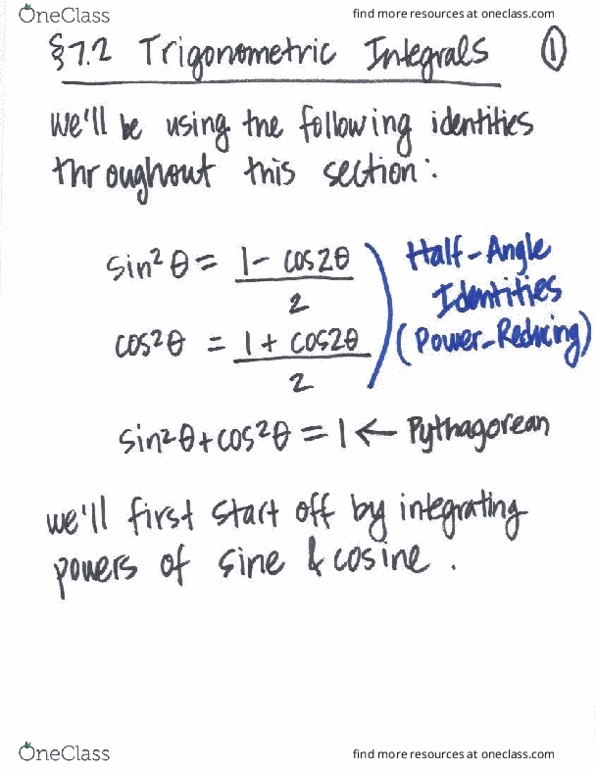 OneClass find more resources at oneclass.com
§7.2 Trigonometric Integrals ①
We'll be using the following identities
throughout this section:
sin²θ = (1 - cos2θ)/2
Half-Angle
Identities
(Power-Reducing)
cos²θ = (1 + cos2θ)/2
sin²θ + cos²θ = 1 ← Pythagorean
we'll first start off by integrating
powers of sine & cosine.
OneClass find more resources at oneclass.com